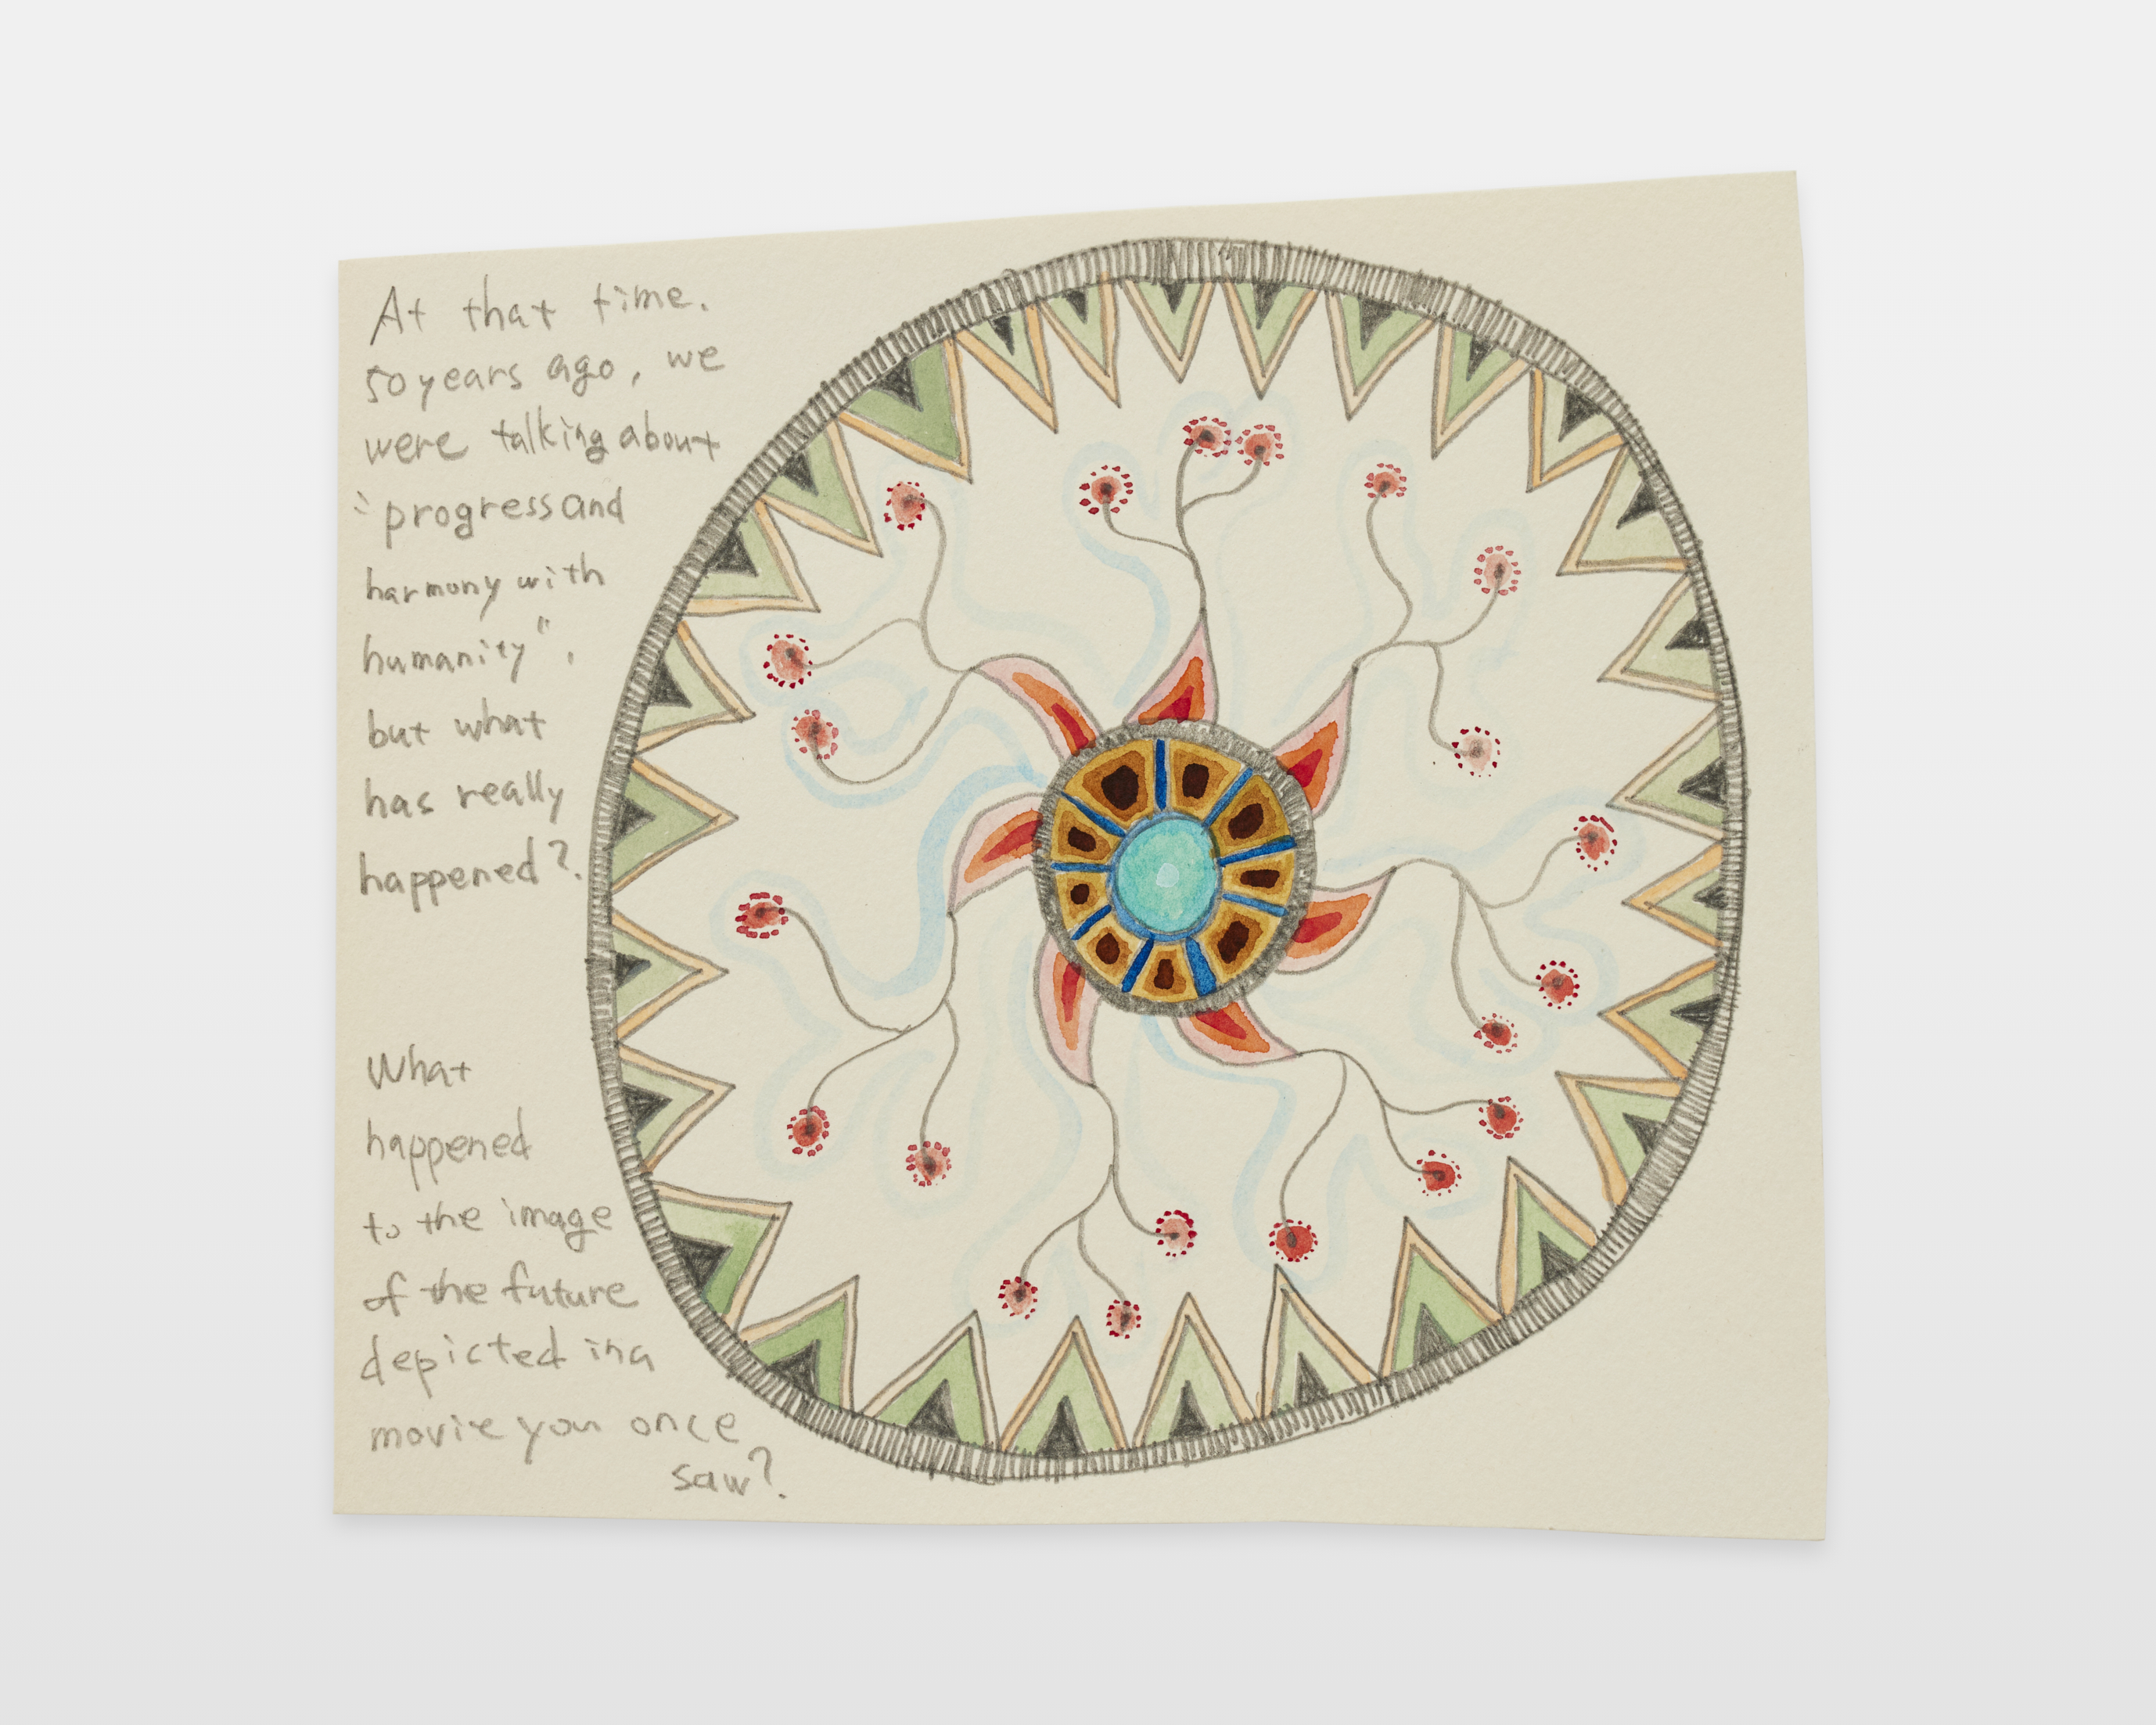 At that time.
50 years ago, we
were talking about
"progress and
harmony with
humanity".
but what
has really
happened?.
What
happened
to the image
of the future
depicted in a
movie you once
saw?.